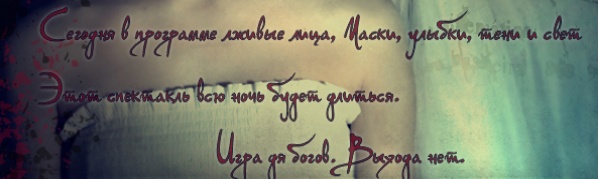 Сегодня в программе лживые лица, Маски, улыбки, тени и свет
Этот спектакль всю ночь будет длиться.
Игра дя богов. Выхода нет.